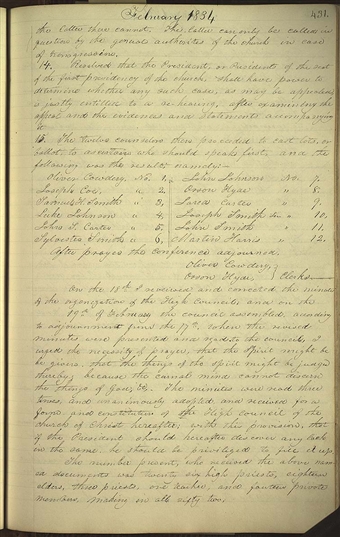 February 1834
431.
the latter them cannot. The latter can only be called in
question by the general authorities of the church in case
of transgression.
14. Resolved that the President, or Presidents of the seat
of the first presidency of the church, shall have power to
determine whether any such case, as may be appealed,
is justly entitled to a re-hearing, after examining the
appeal and the evidences and statements accompanying
it.
15. The twelve counsellors then proceeded to cast lots, or
ballot to ascertain who should speak first, and the
following was the result; namely:—
Oliver Cowdery, No. 1. John Johnson No. 7.
Joseph Coe, " 2. Orson Hyde " 8.
Samuel H. Smith " 3. Jared Carter " 9.
Luke Johnson " 4. Joseph Smith Sen " 10.
John S. Carter " 5. John Smith " 11.
Sylvester Smith " 6. Martin Harris " 12.
After prayer the conference adjourned.
Oliver Cowdery,
Orson Hyde, Clerks
On the 18th I reviewed and corrected the minutes
of the organization of the High Council, and on the
19th of February the council assembled, according
to adjournment from the 17th, when the revised
minutes were presented and read to the council. I
urged the necessity of prayer, that the Spirit might be
given, that the things of the Spirit might be judged
thereby, because the carnal mind cannot discern
the things of God, &c. The minutes were read three
times, and unanimously adopted and received for a
form and constitution of the High Council of the
church of Christ hereafter; with this provision, that
if the President should hereafter discover any lack
in the same, he should be privileged to fill it up.
The number present, who received the above named
documents was twenty six high priests, eighteen
elders, three priests, one teacher, and fourteen private
members, making in all sixty two.